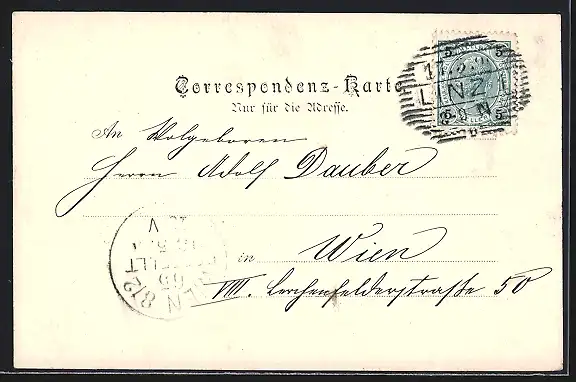 Correspondenz-Karte
Nur für die Adresse.
5 5
LINZ
5 5
An Wolgeboren
Herrn Adolf Dauber
in Wien
VIII. Lerchenfelderstraße 50
WIEN 8/2